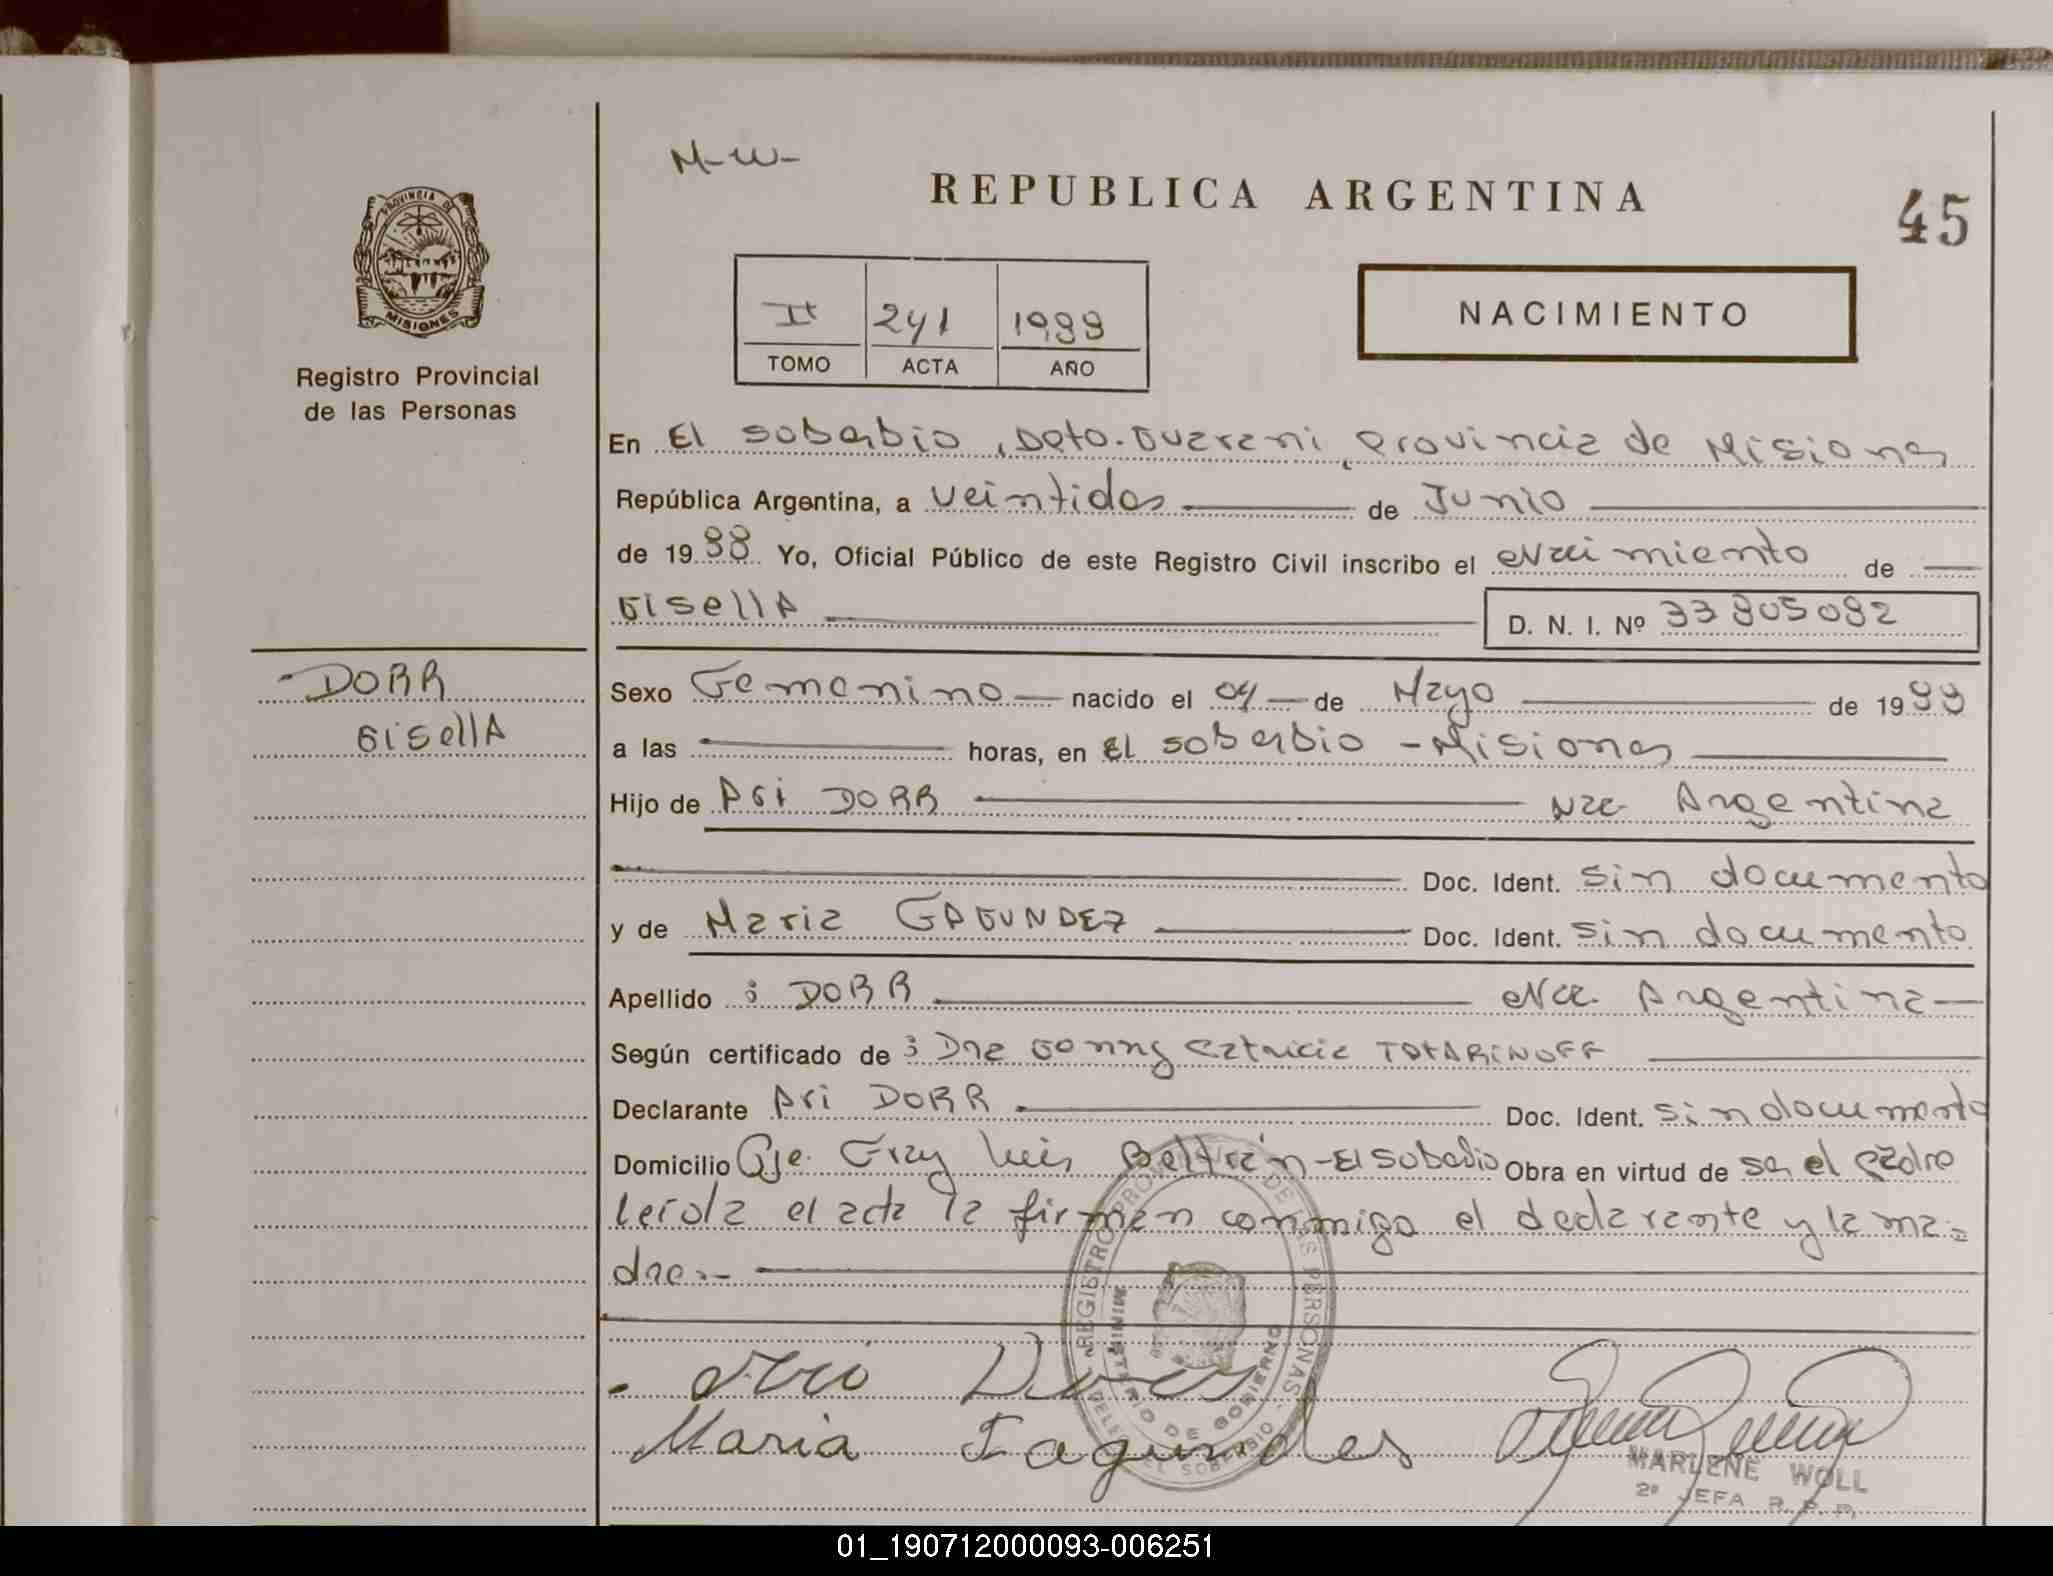 M-W-
REPUBLICA ARGENTINA
45
PROVINCIA DE
MISIONES
Registro Provincial
de las Personas
II 241 1988
TOMO ACTA AÑO
NACIMIENTO
En El Soberbio, Dpto. Guarani, Provincia de Misiones
República Argentina, a veintidos de Junio
de 1988 Yo, Oficial Público de este Registro Civil inscribo el Nacimiento de
GisellA
D. N. I. Nº 33805082
DORR
GisellA
Sexo Femenino nacido el 04 de Mayo de 1988
a las horas, en El Soberbio - Misiones
Hijo de Ari DORR Nac. Argentina
Doc. Ident. sin documento
y de Maria FAGUNDEZ Doc. Ident. sin documento
Apellido : DORR Nac. Argentina
Según certificado de : Dra Patricia TATARINOFF
Declarante Ari DORR Doc. Ident. sin documento
Domicilio Pje. Fray Luis Beltrán - El Soberbio Obra en virtud de ser el padre
leída el acta la firman conmigo el declarante y la ma-
dre.-
REGISTRO PROVINCIAL DE LAS PERSONAS
MINISTERIO DE GOBIERNO
EL SOBERBIO
Maria Fagundes
MARLENE WOLL
2º JEFA R. P. P.
01_190712000093-006251